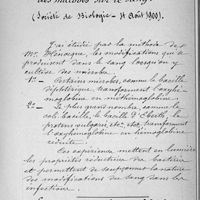 des microbes sur le sang.
(Société de Biologie - 4 Août 1900).
J'ai étudié par la méthode de
Mr. Hénocque, les modifications que
produisent dans le sang lorsqu'on y
cultive des microbes.
1° — Certains microbes, comme le bacille
diphtérique, transforment l'oxyhé-
moglobine en méthémoglobine.
2° — Le plus grand nombre, comme le
coli bacille, le bacille d'Eberth, le
proteus vulgaris, etc., etc., transforment
l'oxyhémoglobine en hémoglobine
réduite.
Ces expériences mettent en lumière
les propriétés réductrices du bactérie
et permettent de soupçonner la nature
des modifications du sang dans les
infections.